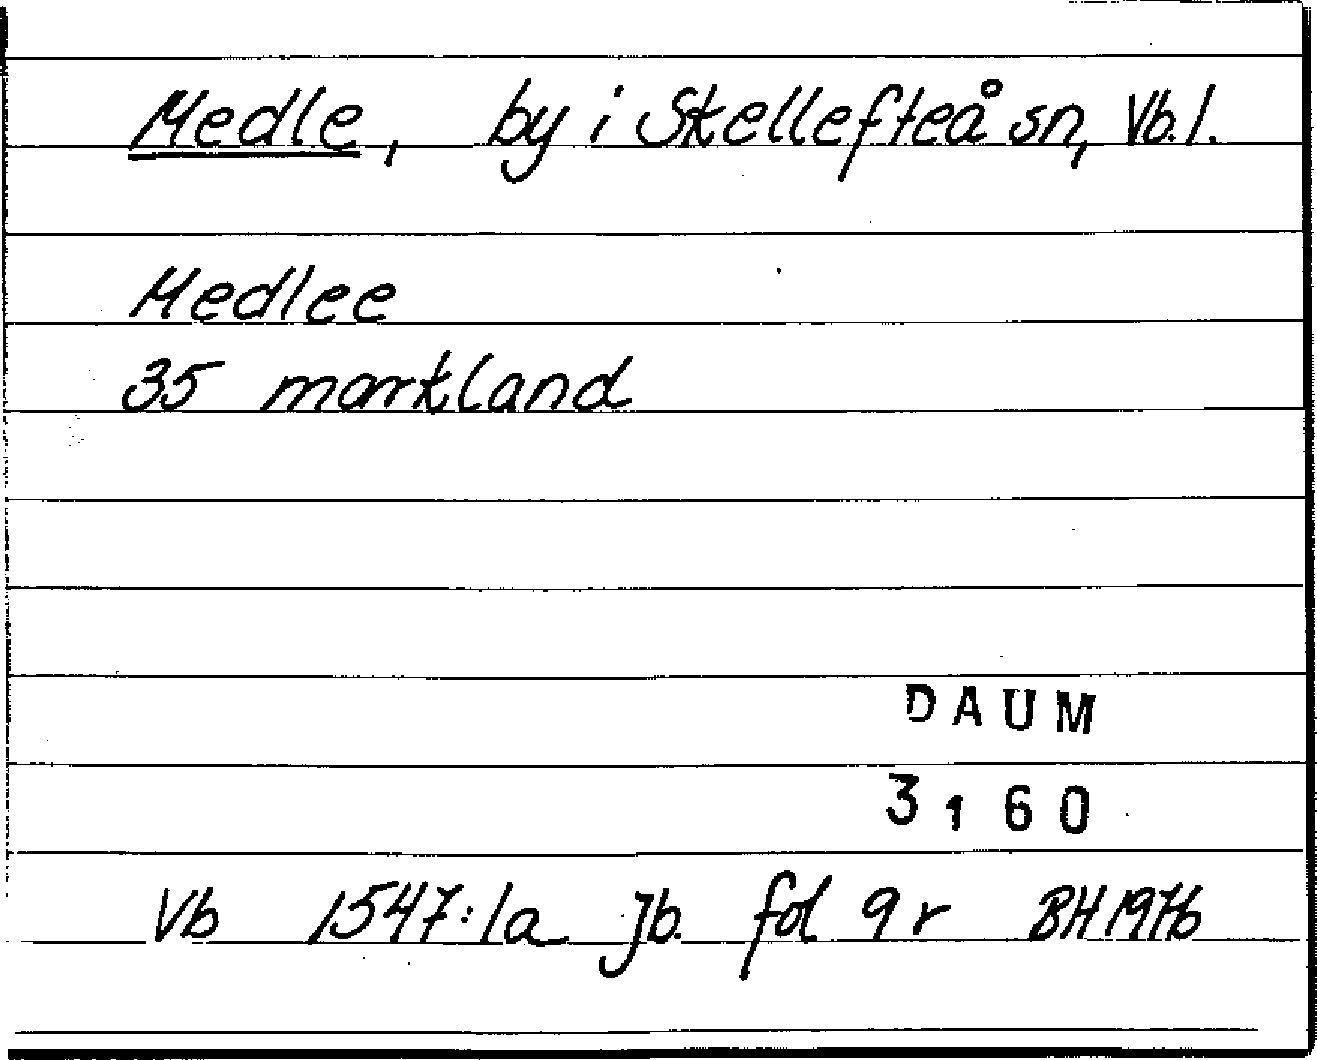 Medle, by i Skellefteå sn, Vb.l.
Medlee
35 markland
DAUM
3160
Vb 1547:1a Jb. fol 9r BH 1976